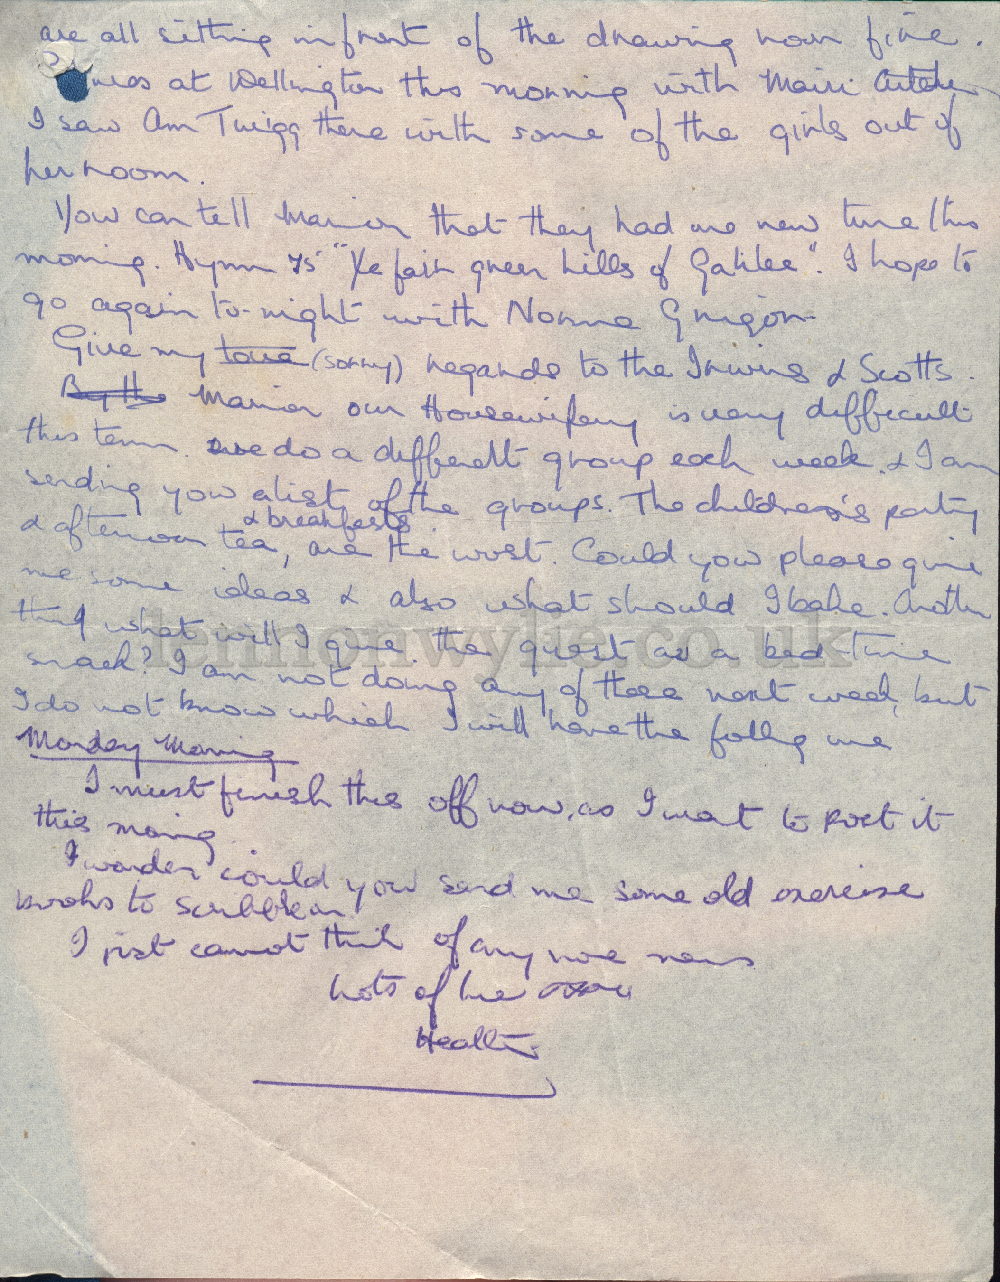 are all sitting infront of the drawing room fire.
was at Wellington this morning with Mairi
I saw Ann Twigg there with some of the girls out of
her room.
You can tell Marion that they had one new tune this
morning. Hymn 75 "Ye fair green hills of Galilee". I hope to
go again to-night with Norma Grigor
Give my love (sorry) regards to the Irwins & Scotts.
By the Marion our Housewifery is very diffecult
this term. we do a differentt group each week, & I am
sending you a list of the groups. The children's party
& afternoon tea, & breakfasts are the worst. Could you please give
me some ideas & also what should I bake. Another
thing what will I give the guest as a bed-time
snack? I am not doing any of these next week, but
I do not know which I will have the follg one
Monday Morning
I must finish this off now, as I want to post it
this morning
I wonder could you send me some old exercise
books to scribble in.
I just cannot think of any more news
Lots of love
Heather
lennonwylie.co.uk